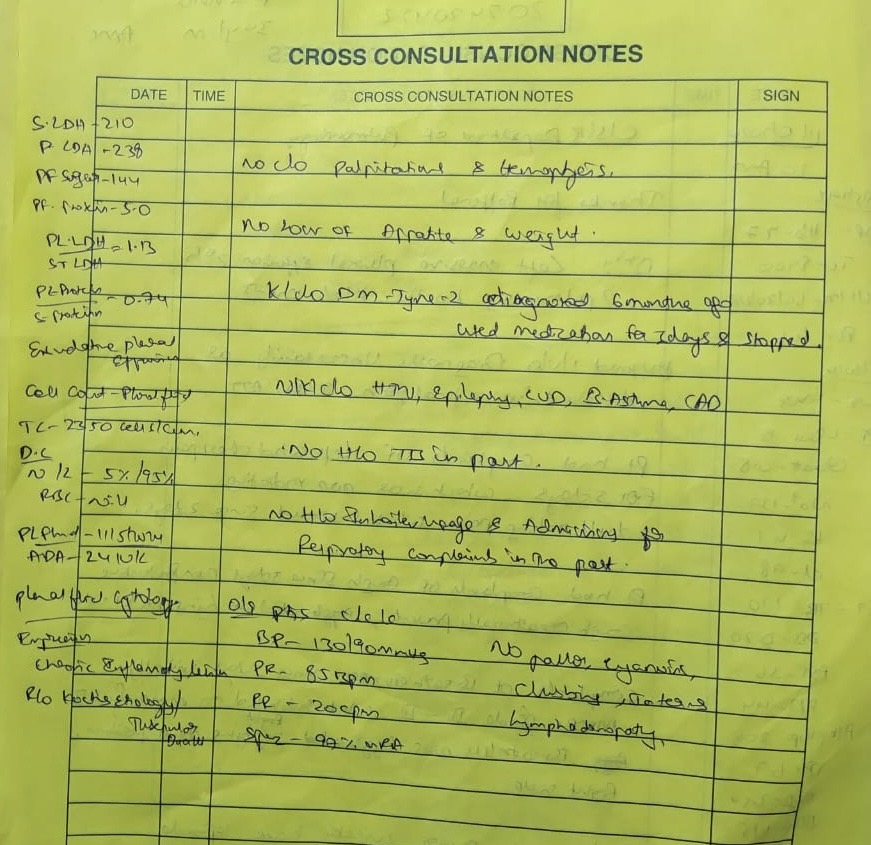 CROSS CONSULTATION NOTES
DATE TIME CROSS CONSULTATION NOTES SIGN
S.LDH - 210
P LDH - 238
No c/o Palpitations & Hemoptysis.
PF Sugar - 144
PF. Protein - 5.0
No Loss of Appatite & weight.
PL.LDH
ST LDH = 1.13
PL Protein
S protein - 0.74
K/c/o DM-Type-2 diagnosed 6 months ago
used medication for 3days & stopped.
Exudative pleural
effusion
N/K/c/o HTN, Epilepsy, CVD, B.Asthma, CAD
Cell Count - Pleural fluid
TC - 2350 cells/cumm.
No H/o TB in past.
D.C
N/L - 5%/95%
RBC - Nil
No H/o Inhaler usage & Admissions for
Respiratory complaints in the past.
PL fluid
ADA - 24 IU/L
Pleural fluid cytology
O/E Pt is c/c/c
BP - 130/90mmHg No pallor, cyanosis,
Impression
Chronic Inflammatory lesion PR - 85 BPM Clubbing, Icterus
R/o Koch's etiology/ RR - 20 cpm Lymphadenopathy.
SpO2 - 97% on RA